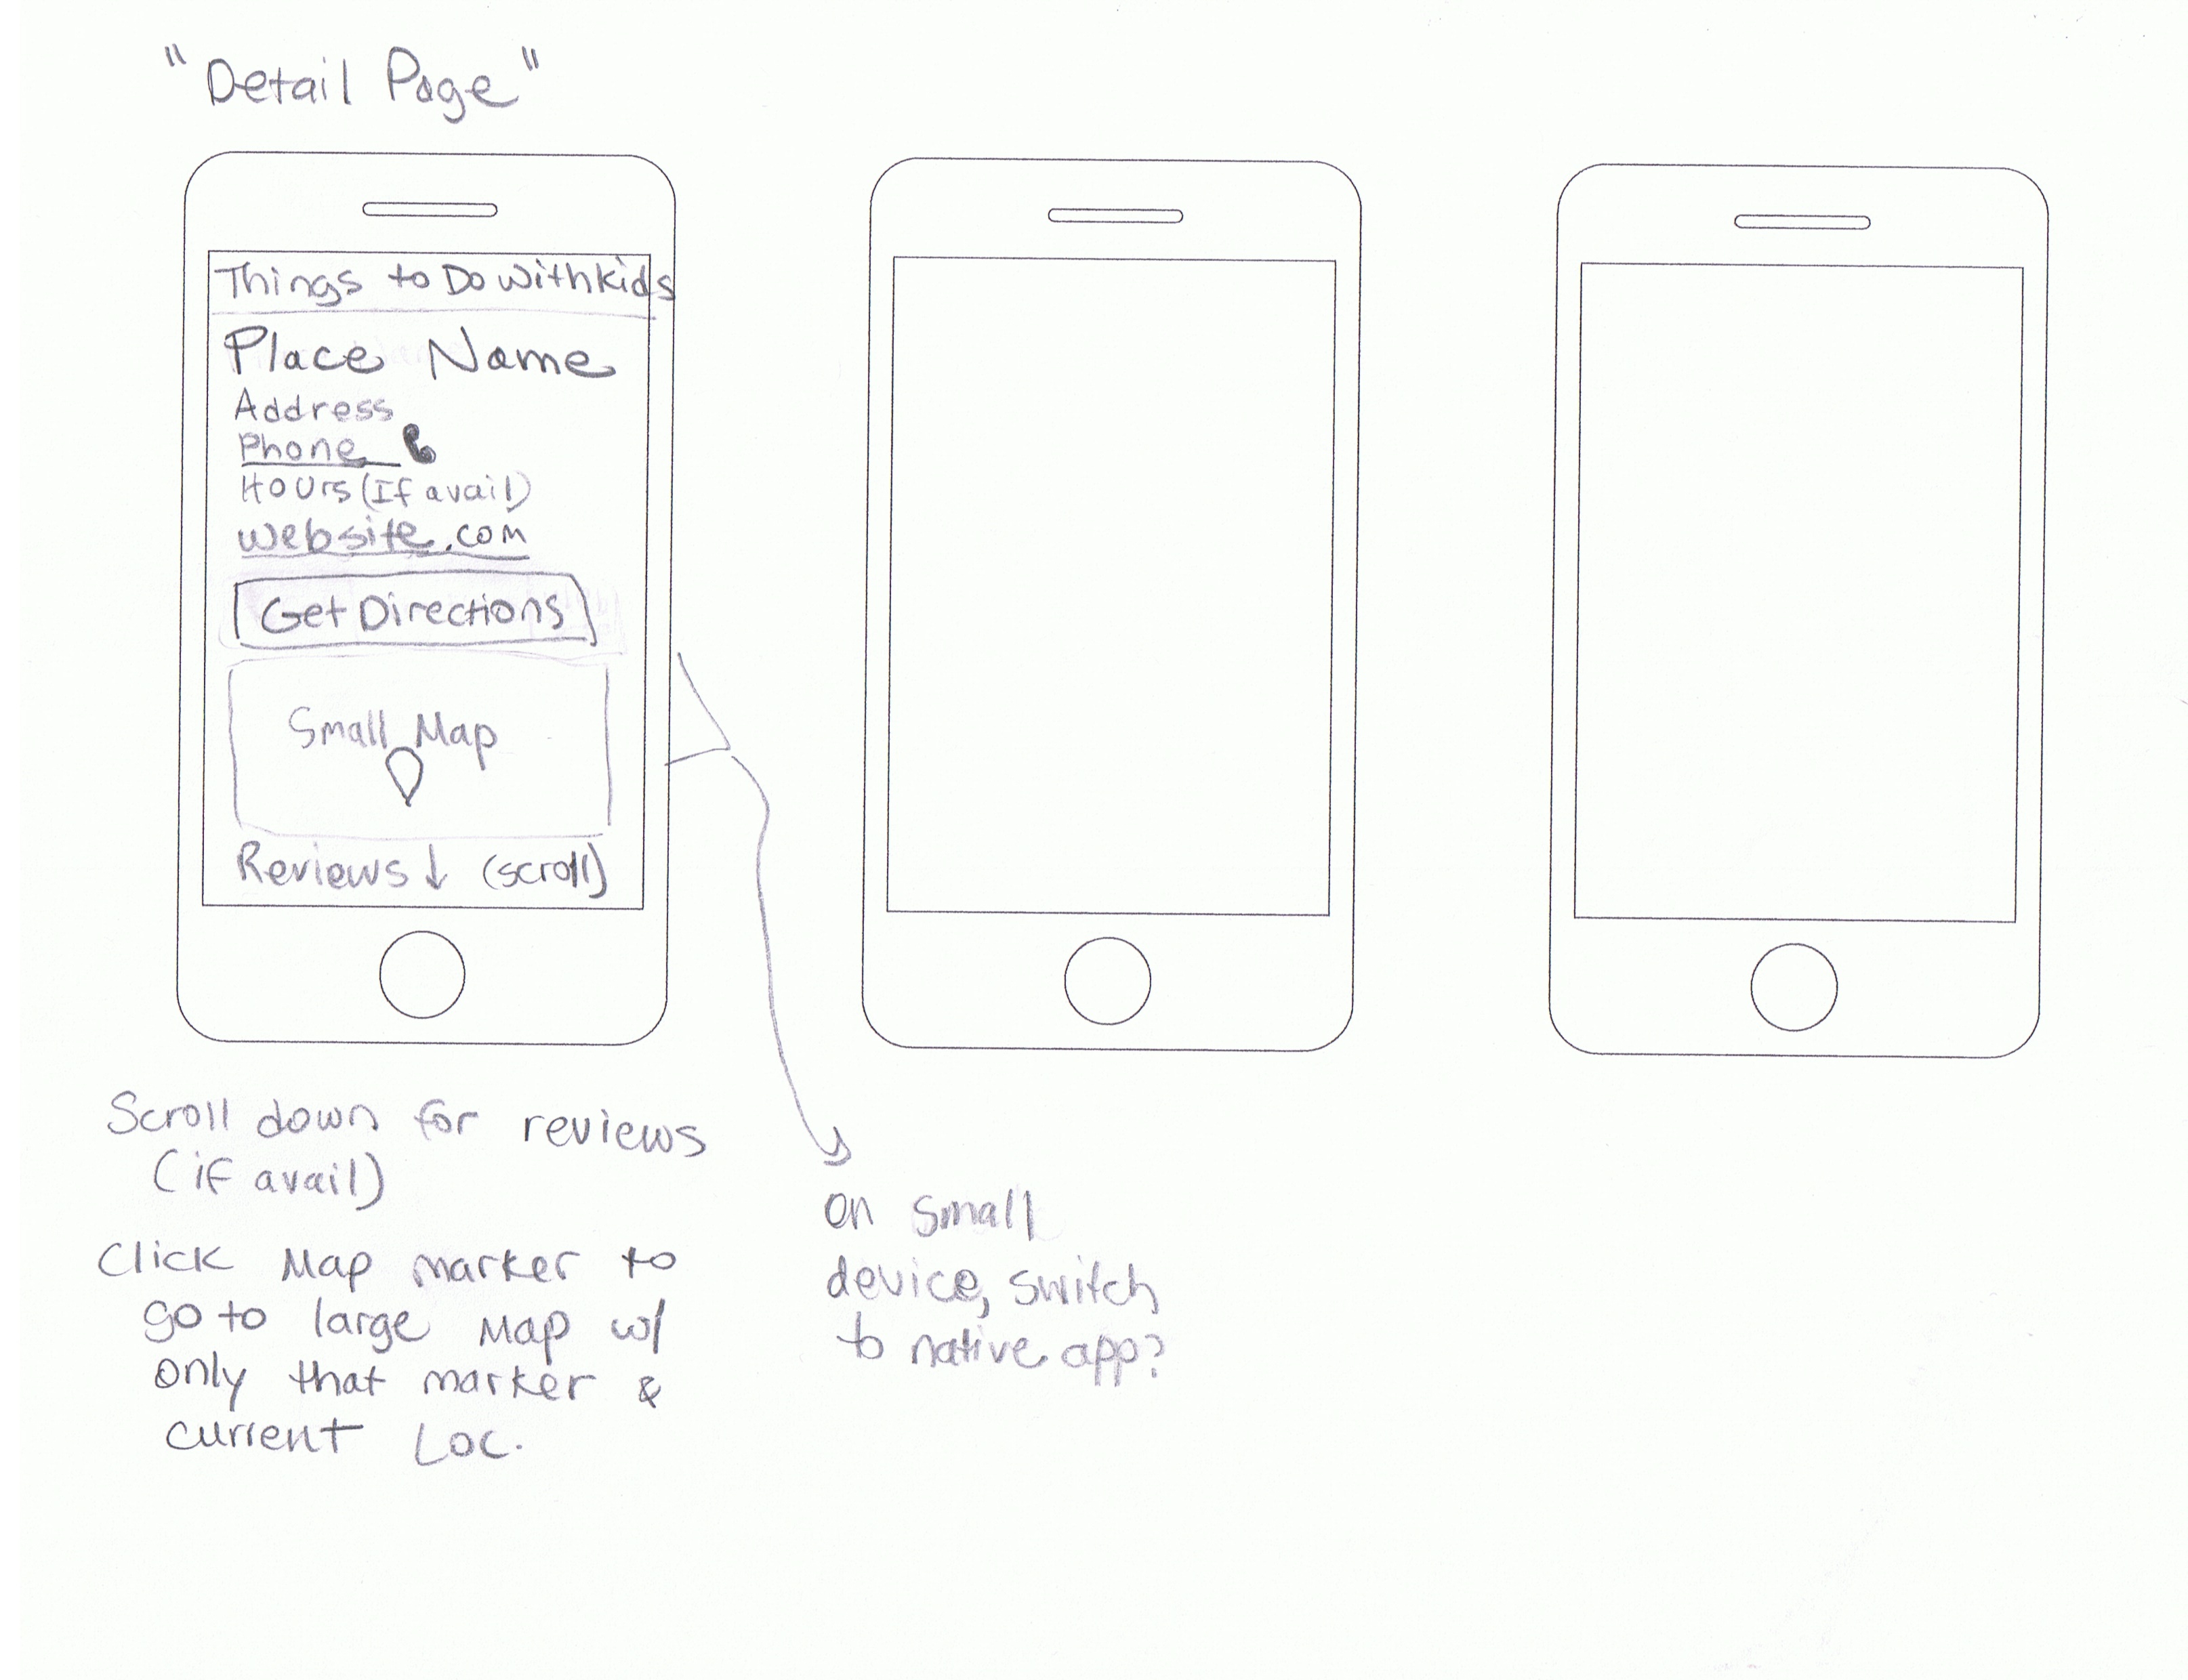 "Detail Page"
Things to Do With Kids
Place Name
Address
Phone
Hours (If avail)
website.com
Get Directions
Small Map
Reviews ↓ (scroll)
Scroll down for reviews
(if avail)
Click Map marker to
go to large Map w/
only that marker &
current Loc.
on small
device, switch
to native app?